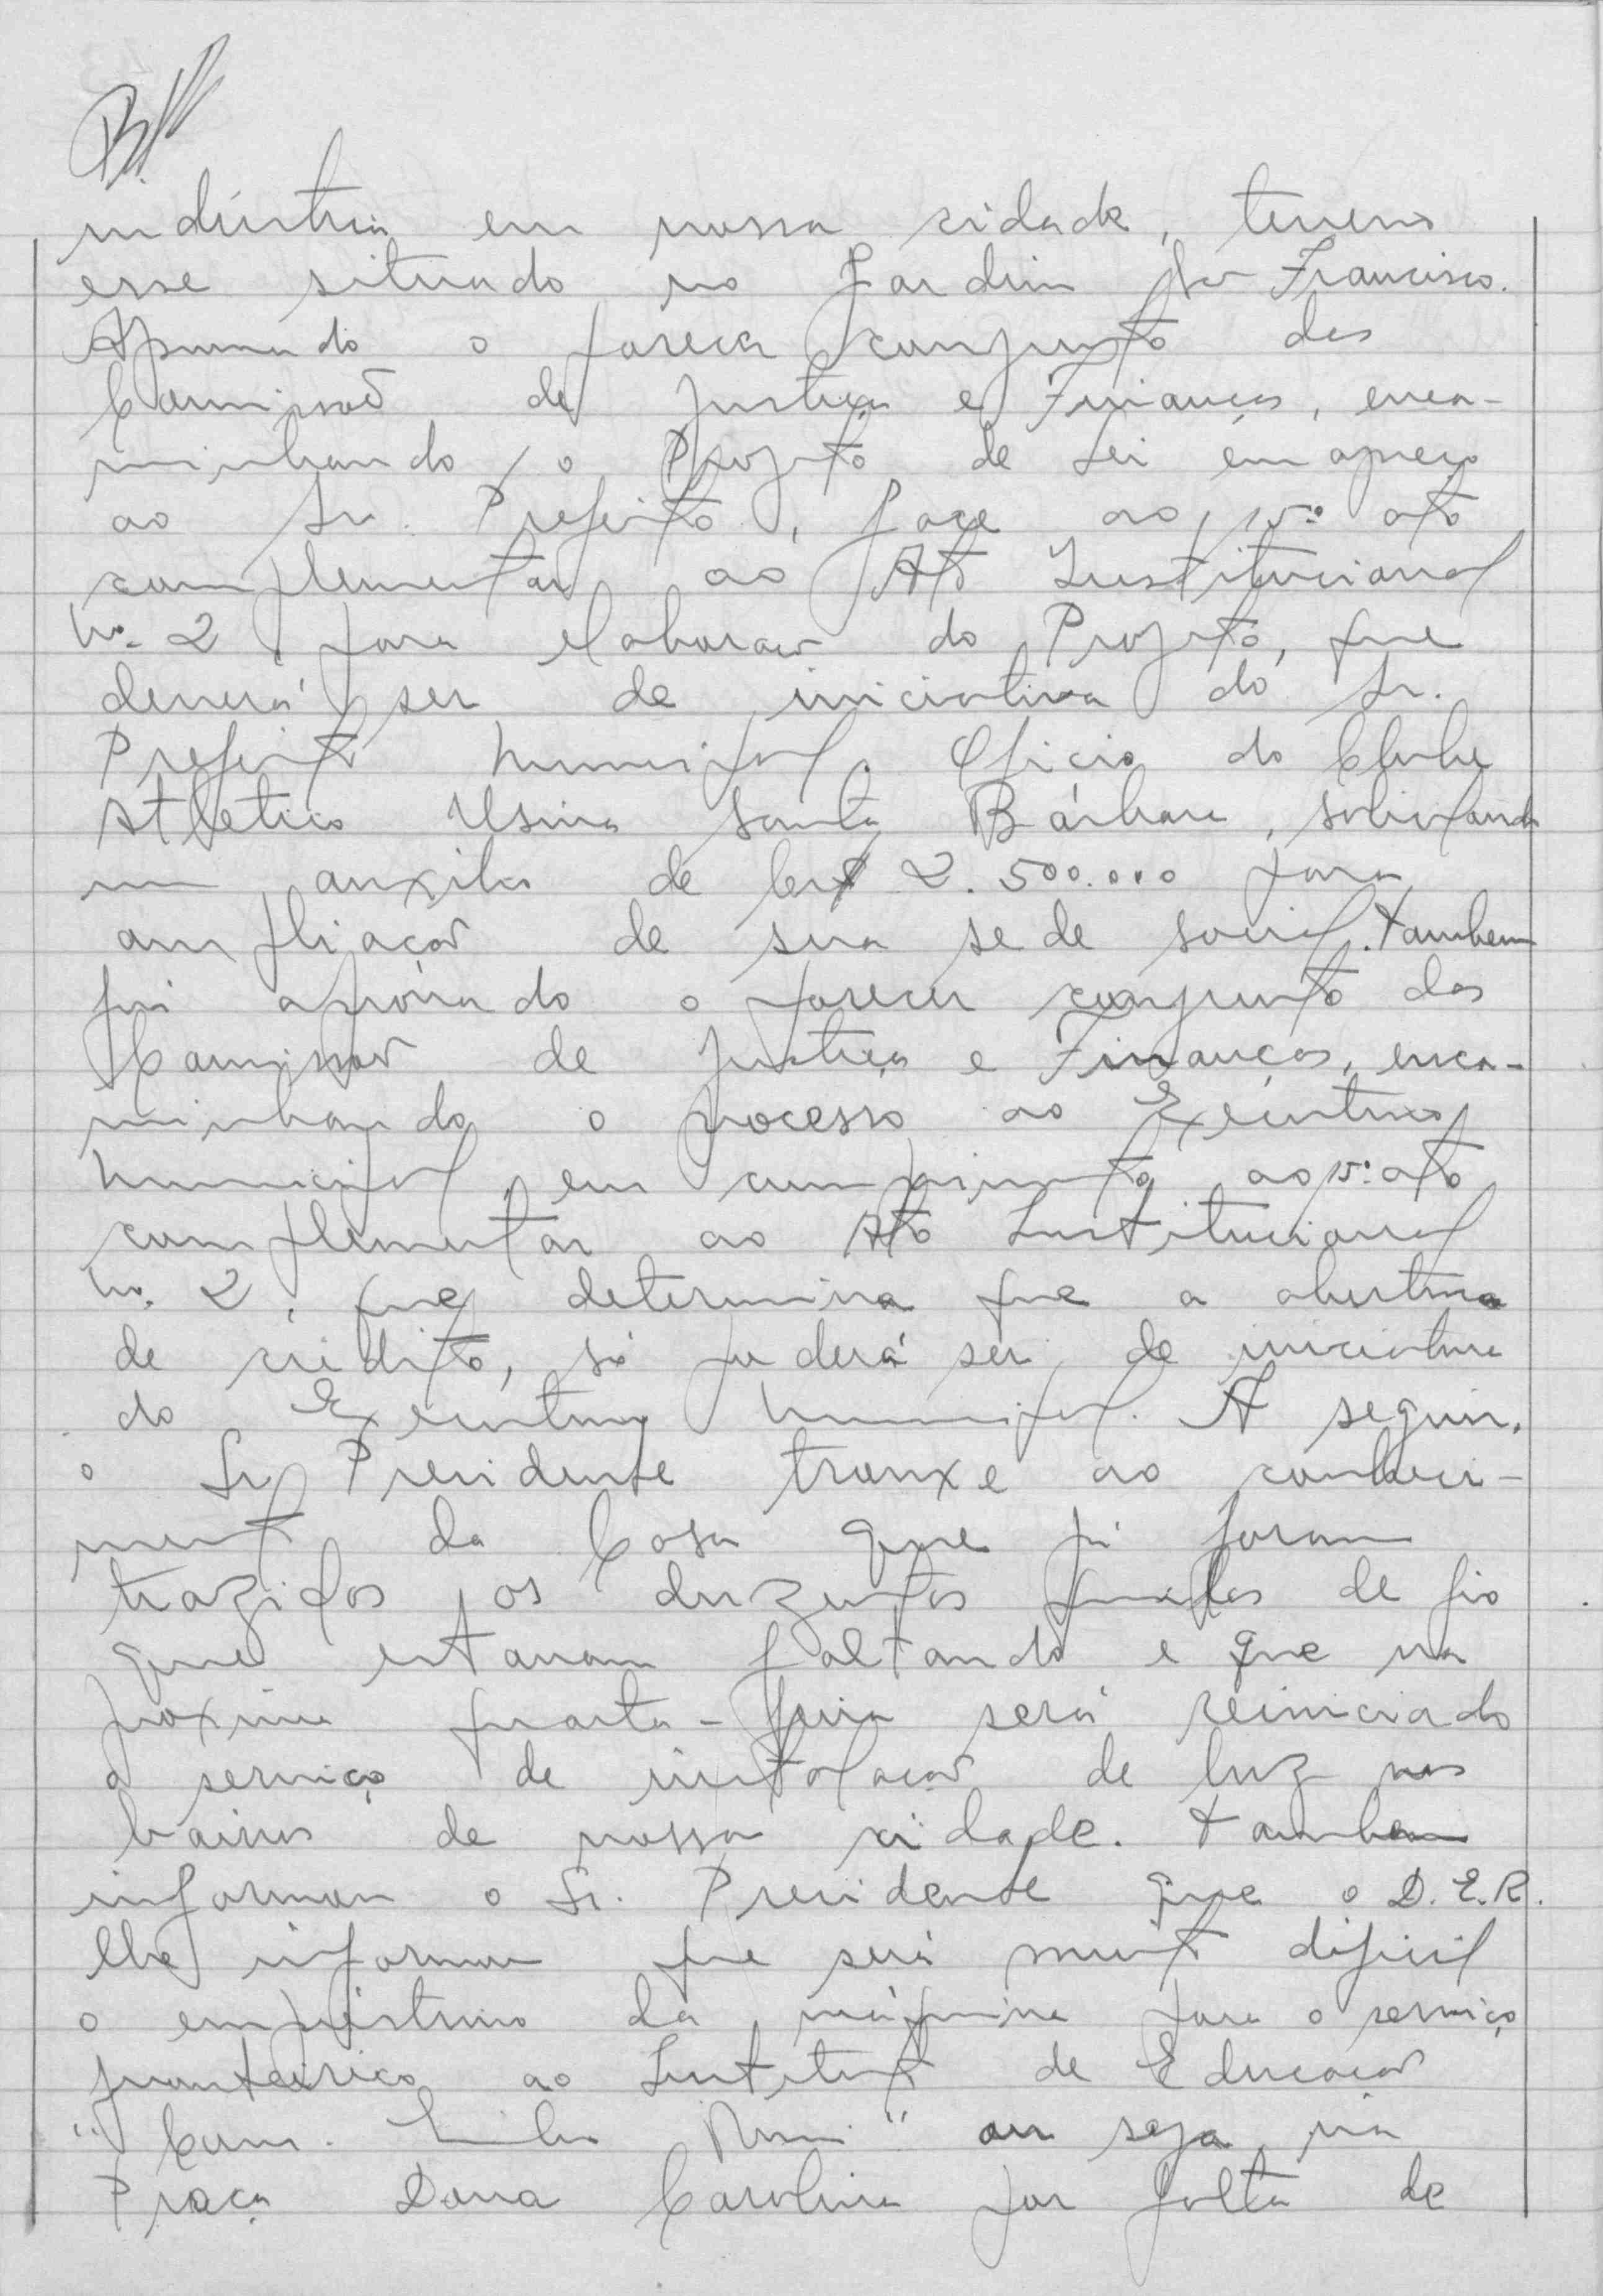 indústria em nossa cidade, terreno
esse situado no Jardim São Francisco.
Aprovado o parecer conjunto das
Comissão de Justiça e Finanças, enca-
minhando o Projeto de Lei em apreço
ao Sr. Prefeito, face ao 15º ato
complementar ao Ato Institucional
Nº. 2 para elaboração do Projeto, que
deverá ser de iniciativa do Sr.
Prefeito Municipal. Oficio do Clube
Atletico Usina Santa Bárbara, solicitando
um auxilio de Cr$ 2.500.000 para
ampliação de sua sede social. Tambem
foi aprovado o parecer conjunto das
Comissão de Justiça e Finanças, enca-
minhando o processo ao Executivo
Municipal, em cumprimento ao 15º ato
complementar ao Ato Institucional
Nº. 2, que determina que a abertura
de crédito, só poderá ser de iniciativa
do Executivo Municipal. A seguir,
o Sr. Presidente trouxe ao conheci-
mento da Casa que já foram
trazidos os duzentos quilos de fio
que estavam faltando e que na
proxima quarta-feira será reiniciado
o serviço de instalação de luz nos
bairros de nossa cidade. Tambem
informou o Sr. Presidente que o D.E.R.
lhe informou que será muito dificil
o empréstimo da máquina para o serviço
fronteiriço ao Instituto de Educação
"Com. Emilio Romi" ou seja na
Praça Dona Carolina por falta de